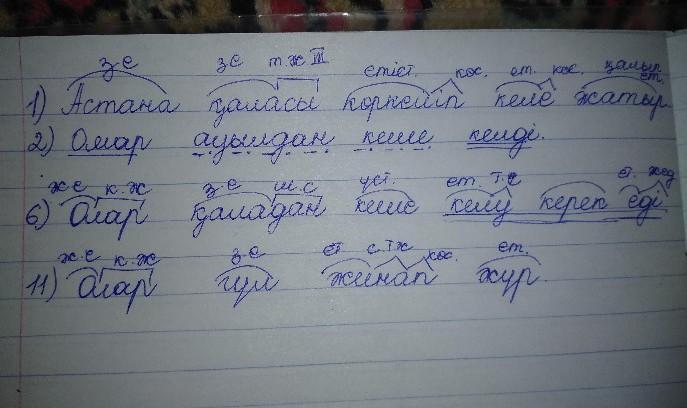 з.е з.е т.ж III етіст. көс. ет. көс. қалып ет.
1) Астана қаласы көркейіп келе жатыр.
2) Омар ауылдан кеше келді.
ж.е к.ж з.е ш.с үст. ет. т.е ет. жед
6) Олар қаладан кеше келу керек еді
ж.е к.ж з.е ет с.т.ж көс. ет.
11) Олар гүл жинап жүр.